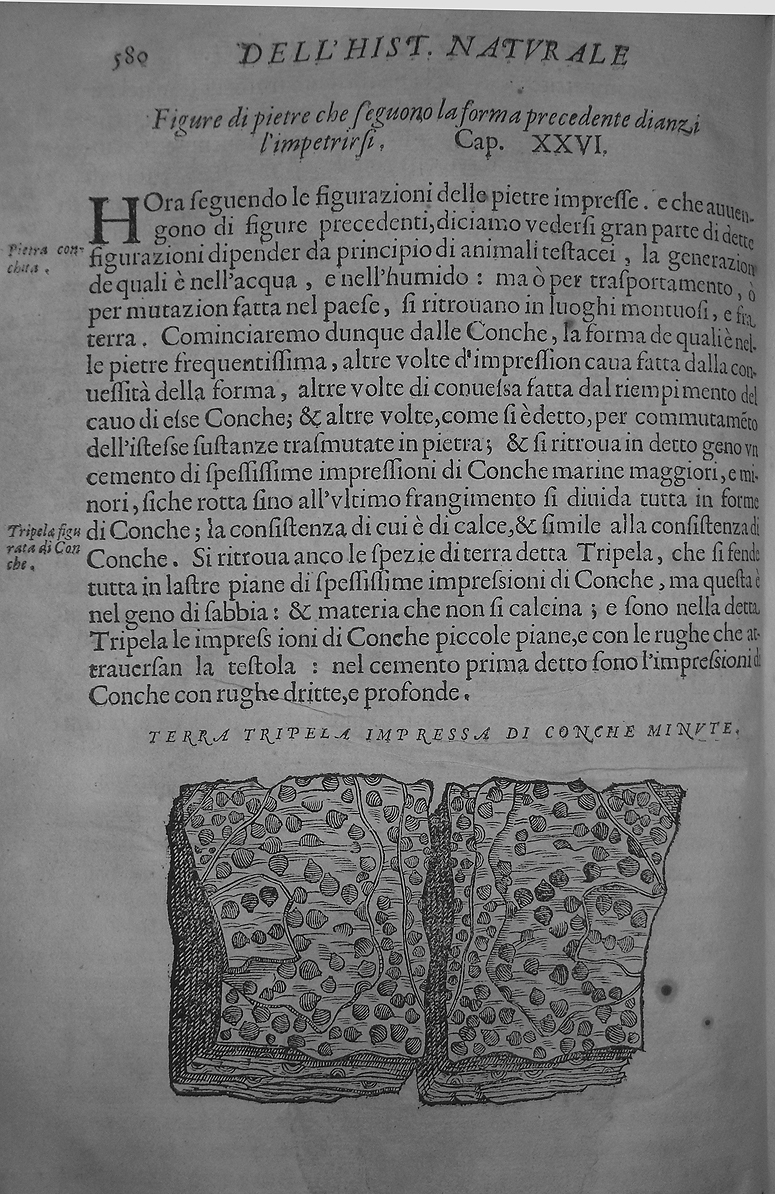 580 DELL'HIST. NATVRALE
Figure di pietre che ſeguono la forma precedente dianzi
l'impetrirſi. Cap. XXVI.
HOra ſeguendo le figurazioni delle pietre impreſſe. e che auuen-
gono di figure precedenti, diciamo vederſi gran parte di dette
Pietra con-
chita.
figurazioni dipender da principio di animali teſtacei, la generazion
de quali è nell'acqua, e nell'humido: ma ò per traſportamento, ò
per mutazion fatta nel paeſe, ſi ritrouano in luoghi montuoſi, e fra
terra. Cominciaremo dunque dalle Conche, la forma de quali è nel-
le pietre frequentiſſima, altre volte d'impreſſion caua fatta dalla con-
ueſſità della forma, altre volte di conueſsa fatta dal riempimento del
cauo di eſse Conche; & altre volte, come ſi è detto, per commutamẽto
dell'iſteſse ſuſtanze traſmutate in pietra; & ſi ritroua in detto geno vn
cemento di ſpeſſiſſime impreſſioni di Conche marine maggiori, e mi-
nori, ſiche rotta ſino all'vltimo frangimento ſi diuida tutta in forme
Tripela figu
rata di Con
che.
di Conche; la conſiſtenza di cui è di calce, & ſimile alla conſiſtenza di
Conche. Si ritroua anco le ſpezie di terra detta Tripela, che ſi fende
tutta in laſtre piane di ſpeſſiſſime impreſsioni di Conche, ma queſta è
nel geno di ſabbia: & materia che non ſi calcina; e ſono nella detta
Tripela le impreſs ioni di Conche piccole piane, e con le rughe che at-
trauerſan la teſtola: nel cemento prima detto ſono l'impreſsioni di
Conche con rughe dritte, e profonde.
TERRA TRIPELA IMPRESSA DI CONCHE MINVTE.